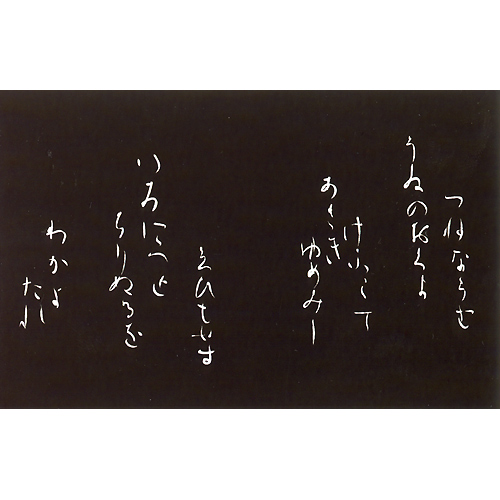 つねならむ
うゐのおくやま
けふこえて
あさき
ゆめみし
ゑひもせす
いろはにほへと
ちりぬるを
わかよ
たれ